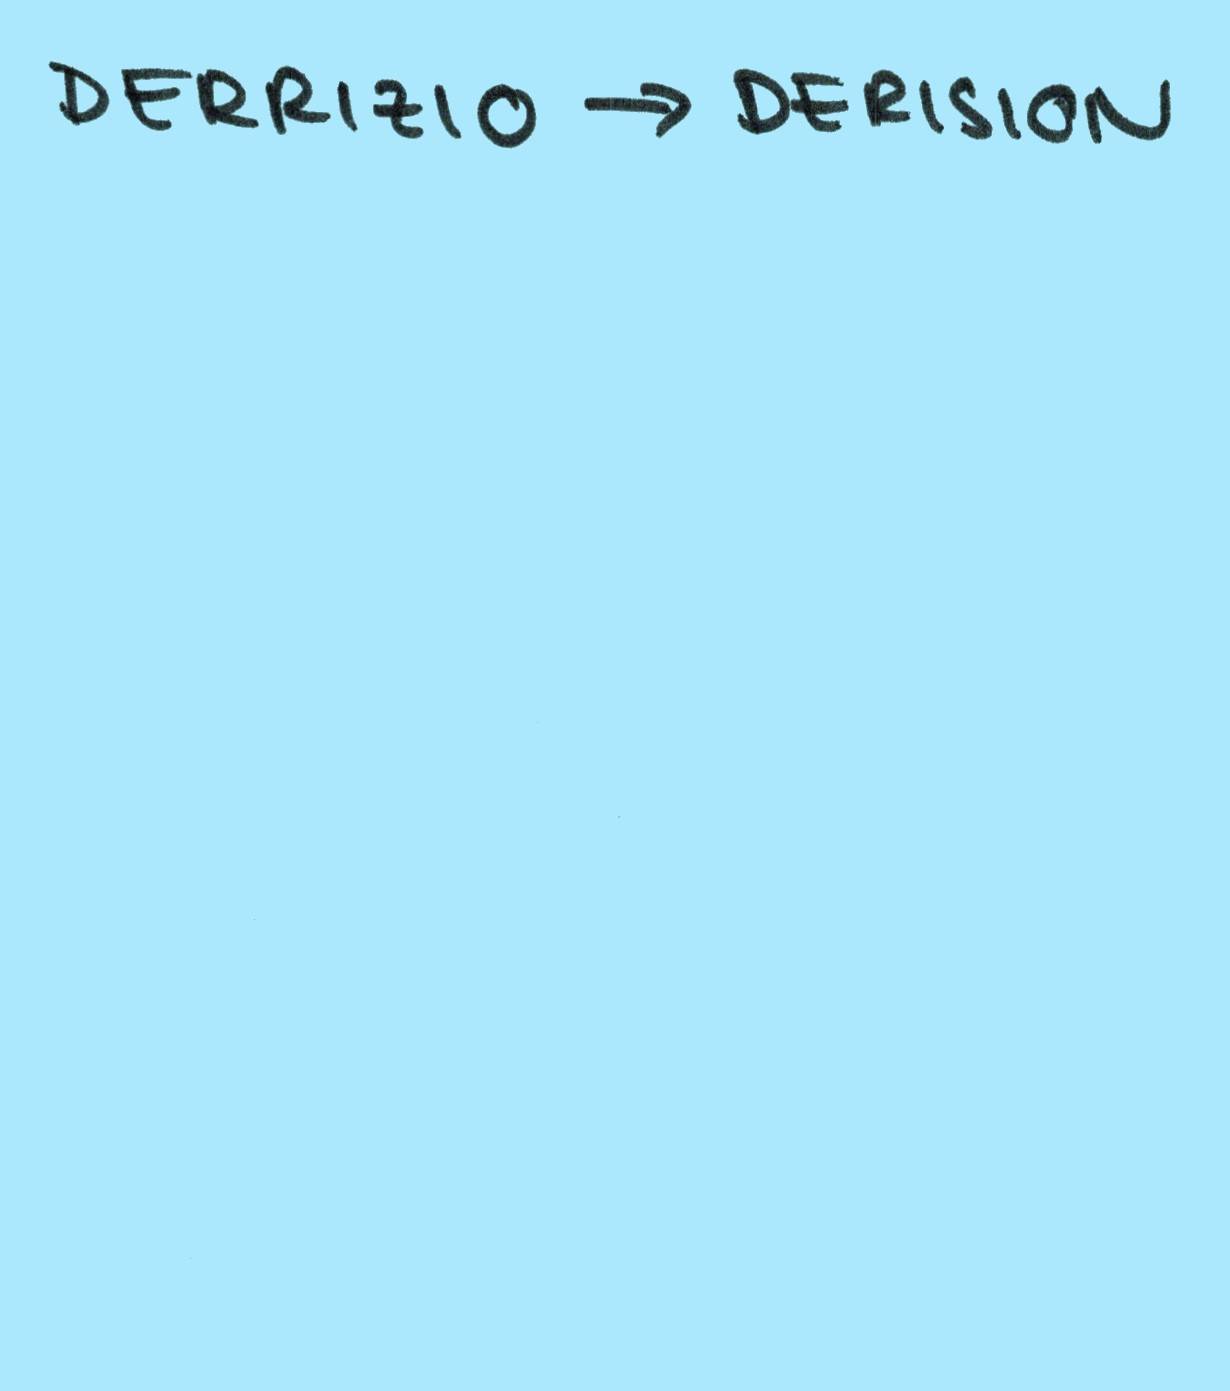 DERRIZIO → DERISION